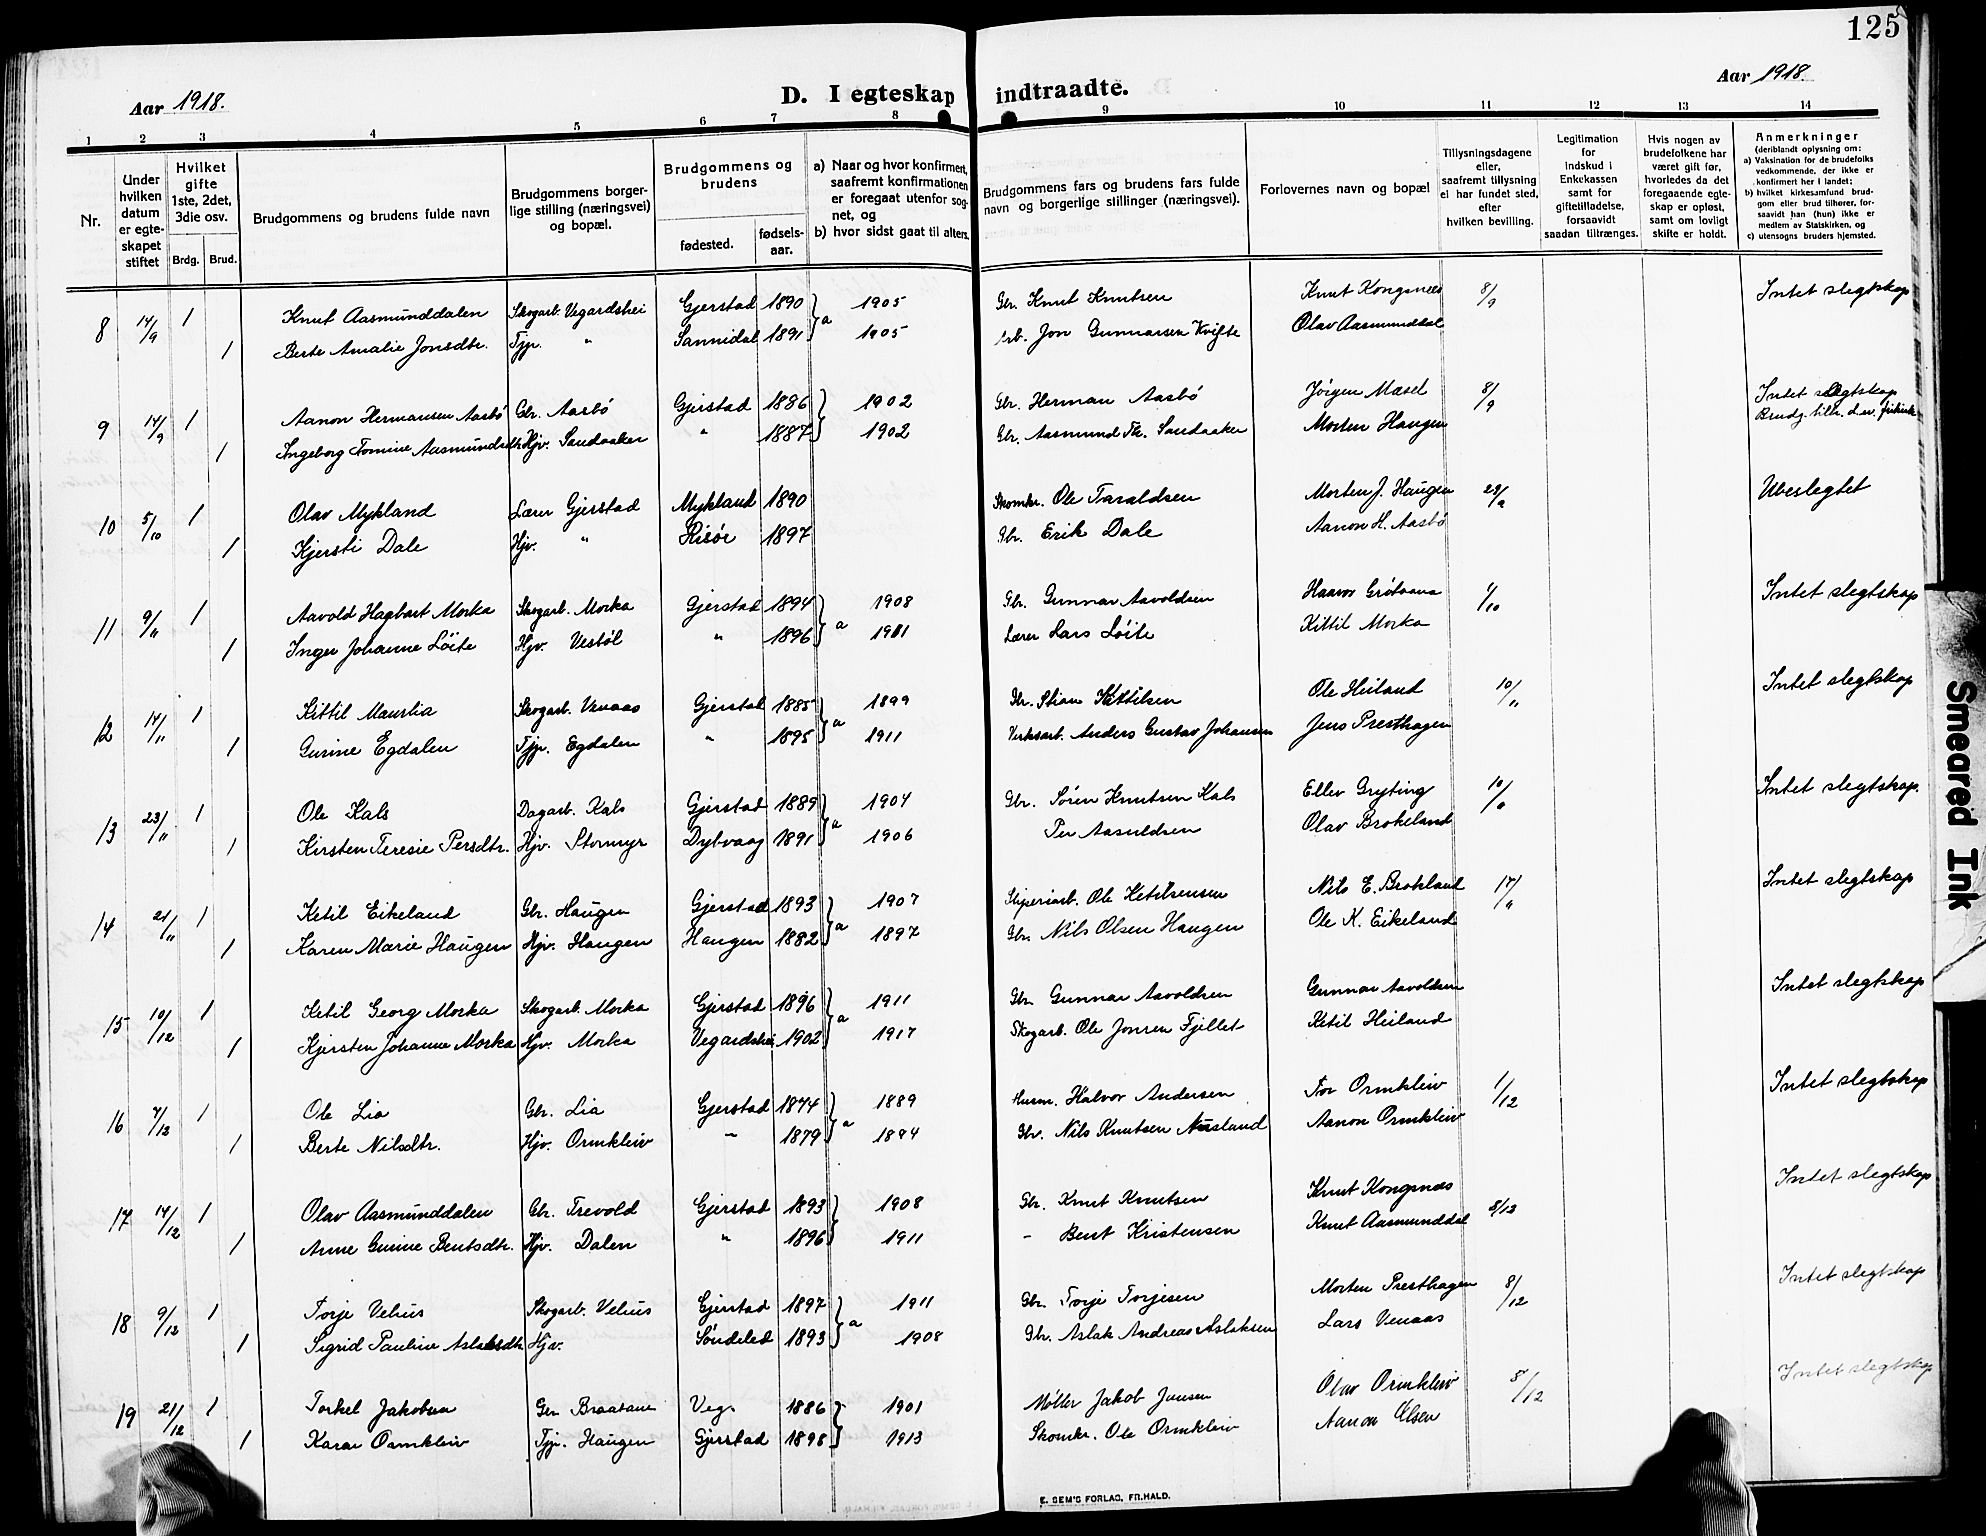 125
Aar 1918.
D. I egteskap indtraadte.
Aar 1918.
1 2 3 4 5 6 7 8 9 10 11 12 13 14
Nr.
Under hvilken datum er egte-skapet stiftet
Hvilket gifte 1ste, 2det, 3die osv.
Brdg. Brud.
Brudgommens og brudens fulde navn
Brudgommens borger-lige stilling (næringsvei) og bopæl.
Brudgommens og brudens
fødested. fødsels-aar.
a) Naar og hvor konfirmert, saafremt konfirmationen er foregaat utenfor sog-net, og
b) hvor sidst gaat til alters.
Brudgommens fars og brudens fars fulde navn og borgerlige stillinger (næringsvei).
Forlovernes navn og bopæl
Tillysningsdagene eller, saafremt tillysning ei har fundet sted, efter hvilken bevilling.
Legitimation for Indskud i Enkekassen samt for giftetilladelse, forsaavidt saadan tiltrænges.
Hvis nogen av brudefolkene har været gift før, hvorledes da det foregaaende egte-skap er opløst, samt om lovligt skifte er holdt.
Anmerkninger (deriblandt oplysning om:
a) Vaksination for de brudefolks vedkommende, der ikke er konfirmert her i landet;
b) hvilket kirkesamfund brud-gom eller brud tilhører, for-saavidt han (hun) ikke er medlem av Statskirken, og
c) utensogns bruders hjemsted.
8 14/9 1 Knut Aasmunddalen Skogarb. Vegardshei Gjerstad 1890 a 1905 Gbr. Knut Knutsen Knut Kongsnæs 8/9 Intet slegtskap
1 Berte Amalie Jonsdtr. Tjp. " Sannidal 1891 1905 Jon Gunnarsen Kvifte Olav Aasmunddal
9 14/9 1 Aanon Hermansen Aasbö Gbr. Aasbö Gjerstad 1886 1902 Gbr. Herman Aasbö Jörgen Mæsel 8/9 Intet slegtskap
1 Ingeborg Tomine Aasmundsdtr. Hjv. Sandaaker " 1887 1902 Gbr. Aasmund Th. Sandaaker Morten Haugen Brudg. tilh. d. ev.
10 5/10 1 Olav Mykland Lærer Gjerstad Mykland 1890 Skomkr. Ole Taraldsen Morten J. Haugen 28/9 Ubeslegtet
1 Kjersti Dale Hjv. " Risör 1897 Gbr. Erik Dale Aanon H. Aasbö
11 9/11 1 Aavold Hagbart Morka Skogarb. Morka Gjerstad 1894 a 1908 Gbr. Gunnar Aavoldsen Haavor Grötvana /10 Intet slegtskap
1 Inger Johanne Löite Hjv. Vestöl " 1896 1911 Lærer Lars Löite Kittil Morka
12 14/11 1 Kittil Maurlia Skogarb. Venaas Gjerstad 1885 a 1899 Gbr. Stian Kittilsen Ole Heiland 10/11 Intet slegtskap
1 Gurine Egdalen Tjp. Egdalen " 1895 1911 Verksarb. Anders Gustav Johansen Jens Presthagen
13 23/11 1 Ole Kals Dagarb. Kals Gjerstad 1889 a 1904 Gbr. Sören Knutsen Kals Ellev Gryting 10/11 Intet slegtskap.
1 Kirsten Teresie Persdtr. Hjv. Stormyr Dybvaag 1891 1906 Per Aasuldsen Olav Brokeland
14 21/11 1 Ketil Eikeland Gbr. Haugen Gjerstad 1893 a 1907 Sliperiarb. Ole Ketilsensen Nils E. Brokland 17/11 Intet slegtskap
1 Karen Marie Haugen Hjv. Haugen Haugen 1882 1897 Gbr. Nils Olsen Haugen Ole K. Eikeland
15 10/12 1 Ketil Georg Morka Skogarb. Morka Gjerstad 1896 a 1911 Gbr. Gunnar Aavoldsen Gunnar Aavoldsen Intet slegtskap
1 Kjersten Johanne Morka Hjv. Morka Vegardshei 1902 1917 Skogarb. Ole Jonsen Fjellet Ketil Heiland
16 7/12 1 Ole Lia Gbr. Lia Gjerstad 1874 a 1889 Husm. Halvor Andersen Tor Ormkleiv 1/12 Intet slegtskap
1 Berte Nilsdtr. Hjv. Ormkleiv " 1879 1894 Gbr. Nils Knutsen Næsland Aanon Ormkleiv
17 14/12 1 Olav Aasmunddalen Gbr. Trevold Gjerstad 1893 1908 Gbr. Knut Knutsen Knut Kongsnæs 8/12 Intet slegtskap
1 Anne Gurine Bentsdtr. Hjv. Dalen " 1896 1911 - Bent Kristensen Knut Aasmunddal
18 9/12 1 Torje Velius Skogarb. Velius Gjerstad 1897 a 1911 Gbr. Torje Torjesen Morten Presthagen 8/12 Intet slegtskap
1 Sigrid Pauline Aslaksdtr. Hjv. Söndeled 1893 1908 Gbr. Aslak Andreas Aslaksen Lars Venaas
19 21/12 1 Torkel Jakobsen Braatane Veg. 1886 1901 Møller Jakob Jensen Olav Ormkleiv 8/12 Intet slegtskap
1 Karar Ormkleiv Tjp. Haugen Gjerstad 1898 1913 Skomkr. Ole Ormkleiv Aanon Olsen
E. SEM'S FORLAG, FR.HALD.
Smeared Ink